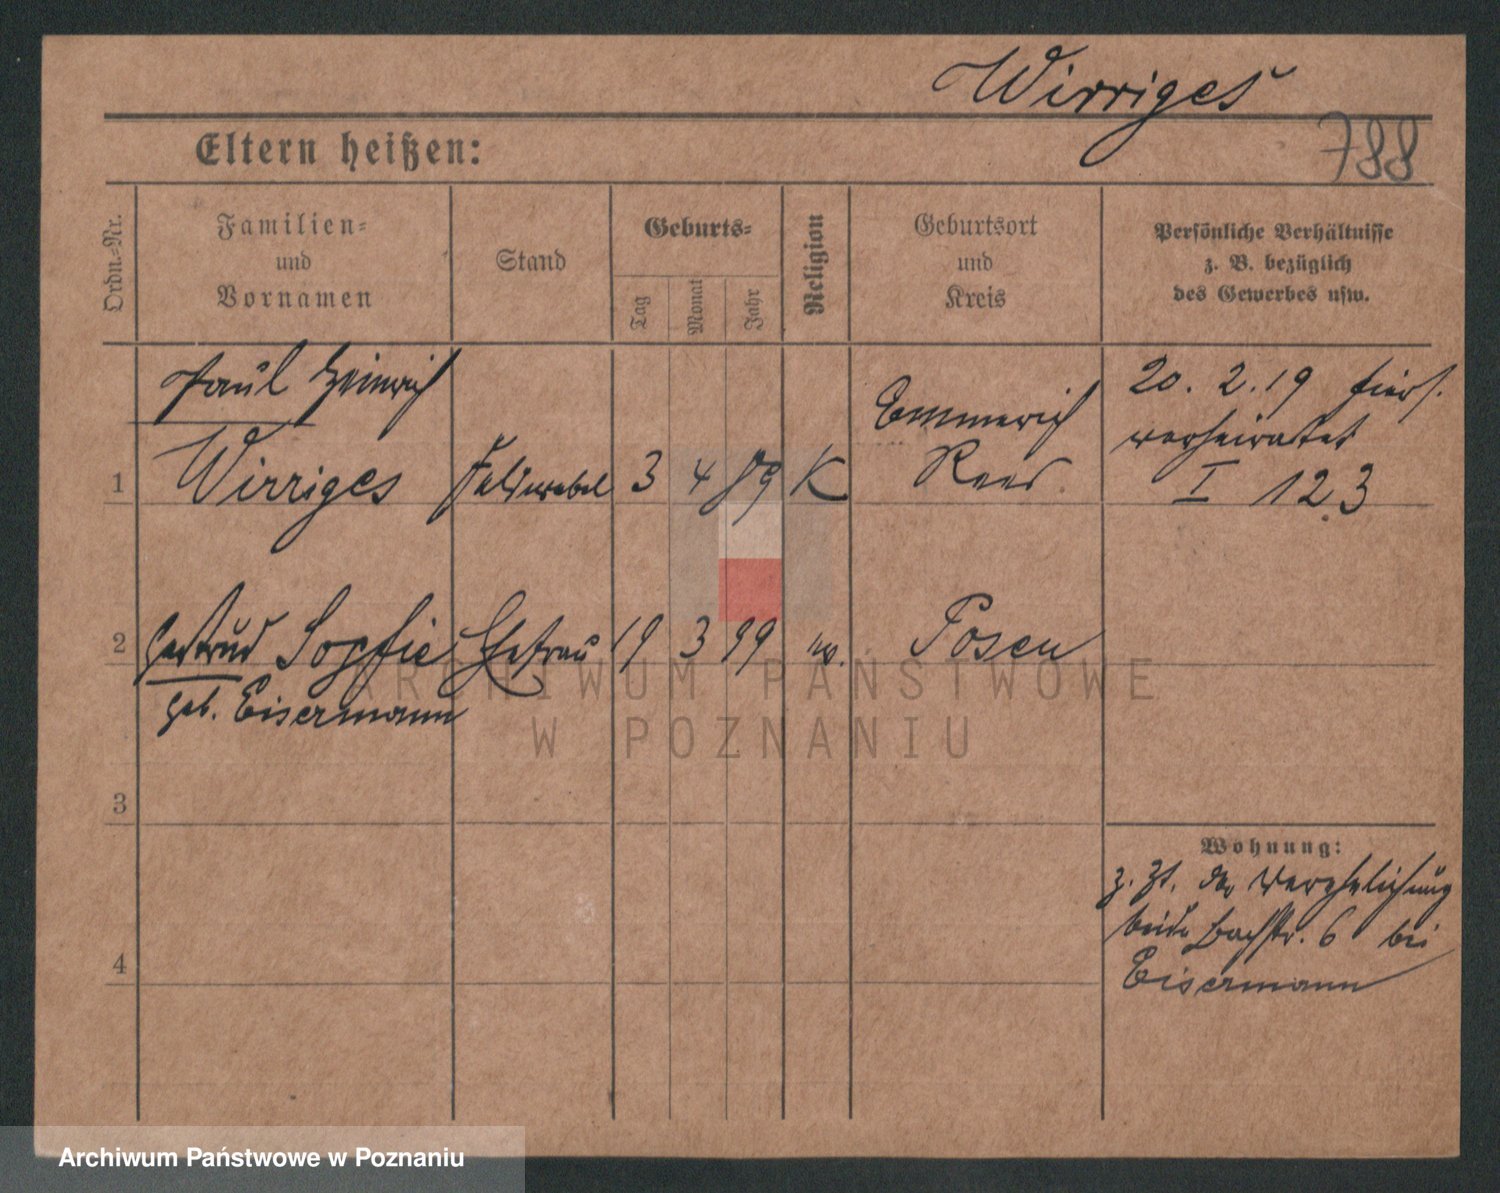 Wirriges
788
Eltern heißen:
Ordn.-Nr.
Familien-
und
Vornamen
Stand
Geburts-
Tag
Monat
Jahr
Religion
Geburtsort
und
Kreis
Persönliche Verhältnisse
z. B. bezüglich
des Gewerbes usw.
Paul Heinrich
1 Wirriges Feldwebel 3 4 89 K Emmerich
Rees
20. 2. 19 hiers.
verheiratet
I 123
2 Gertrud Sophie Ehefrau 19 3 99 Posen
geb. Eisermann
ARCHIWUM PAŃSTWOWE
W POZNANIU
3
4
Wohnung:
z. Zt. der Verehelichung
beide Bachstr. 6 bei
Eisermann
Archiwum Państwowe w Poznaniu